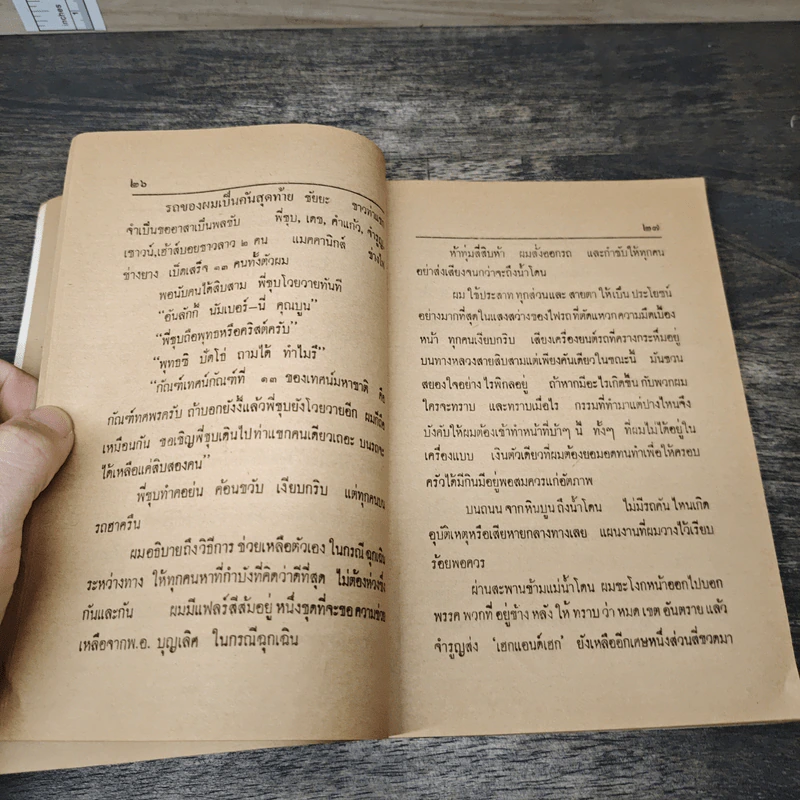 inches
1
๒๖
รถของผมเป็นคันสุดท้าย ชัยยะ
จำเป็นขออาสาเป็นพลขับ พี่ชุบ, เดช, คำแก้ว, จำรูญ
เชาวน์,เฮ้าส์บอยชาวลาว ๒ คน แมคคานิกส์ ช่างไฟ
ช่างยาง เบ็ดเสร็จ ๑๓ คนทั้งตัวผม
พอนับคนได้สิบสาม พี่ชุบโวยวายทันที
“อันลักกี้ นัมเบอร์—นี่ คุณบูน”
“พี่ชุบถือพุทธหรือคริสต์ครับ”
“พุทธซิ ปัดโธ่ ถามได้ ทำไมรึ”
“กัณฑ์เทศน์กัณฑ์ที่ ๑๓ ของเทศน์มหาชาติ คือ
กัณฑ์ทศพรครับ ถ้าบอกยังงี้แล้วพี่ชุบยังโวยวายอีก ผมก็ถือ
เหมือนกัน ขอเชิญพี่ชุบเดินไปท่าแขกคนเดียวเถอะ บนรถจะ
ได้เหลือแค่สิบสองคน”
พี่ชุบทำคอย่น ค้อนขวับ เงียบกริบ แต่ทุกคนบน
รถฮาครืน
ผมอธิบายถึงวิธีการ ช่วยเหลือตัวเอง ในกรณี ฉุกเฉิน
ระหว่างทาง ให้ทุกคนหาที่กำบังที่คิดว่าดีที่สุด ไม่ต้องห่วงซึ่ง
กันและกัน ผมมีแฟลร์สีส้มอยู่ หนึ่งชุดที่จะขอ ความช่วย
เหลือจากพ.อ. บุญเลิศ ในกรณีฉุกเฉิน
๒๗
ห้าทุ่มสี่สิบห้า ผมสั่งออกรถ และกำชับให้ทุกคน
อย่าส่งเสียงจนกว่าจะถึงน้ำโดน
ผม ใช้ประสาท ทุกส่วนและ สายตา ให้เป็น ประโยชน์
อย่างมากที่สุดในแสงสว่างของไฟรถที่ตัดแหวกความมืดเบื้อง
หน้า ทุกคนเงียบกริบ เสียงเครื่องยนต์รถที่ครางกระหึ่มอยู่
บนทางหลวงสายสิบสามแต่เพียงคันเดียวในขณะนี้ มันชวน
สยองใจอย่าง ไรพิกลอยู่ ถ้าหากมีอะไรเกิดขึ้น กับพวกผม
ใครจะทราบ และทราบเมื่อไร กรรมที่ทำมาแต่ปางไหนจึง
บังคับให้ผมต้องเข้าทำหน้าที่บ้าๆ นี้ ทั้งๆ ที่ผมไม่ได้อยู่ใน
เครื่องแบบ เงินตัวเดียวที่ผมต้องยอมอดทนทำเพื่อให้ครอบ
ครัวได้มีกินมีอยู่พอสมควรแก่อัตภาพ
บนถนน จากหินบูน ถึงน้ำโดน ไม่มีรถคัน ไหนเกิด
อุบัติเหตุหรือเสียหายกลางทางเลย แผนงานที่ผมวางไว้เรียบ
ร้อยพอควร
ผ่านสะพานข้ามแม่น้ำโดน ผมชะโงกหน้าออกไปบอก
พรรค พวกที่ อยู่ข้าง หลัง ให้ ทราบ ว่า หมด เขต อันตราย แล้ว
จำรูญส่ง ‘เฮกแอนด์เฮก’ ยังเหลืออีกเศษหนึ่งส่วนสี่ขวดมา